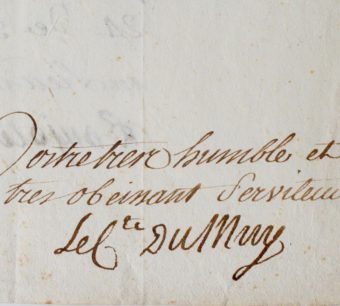 Votre tres humble et
tres obeissant Serviteur
le Cte Du Muy